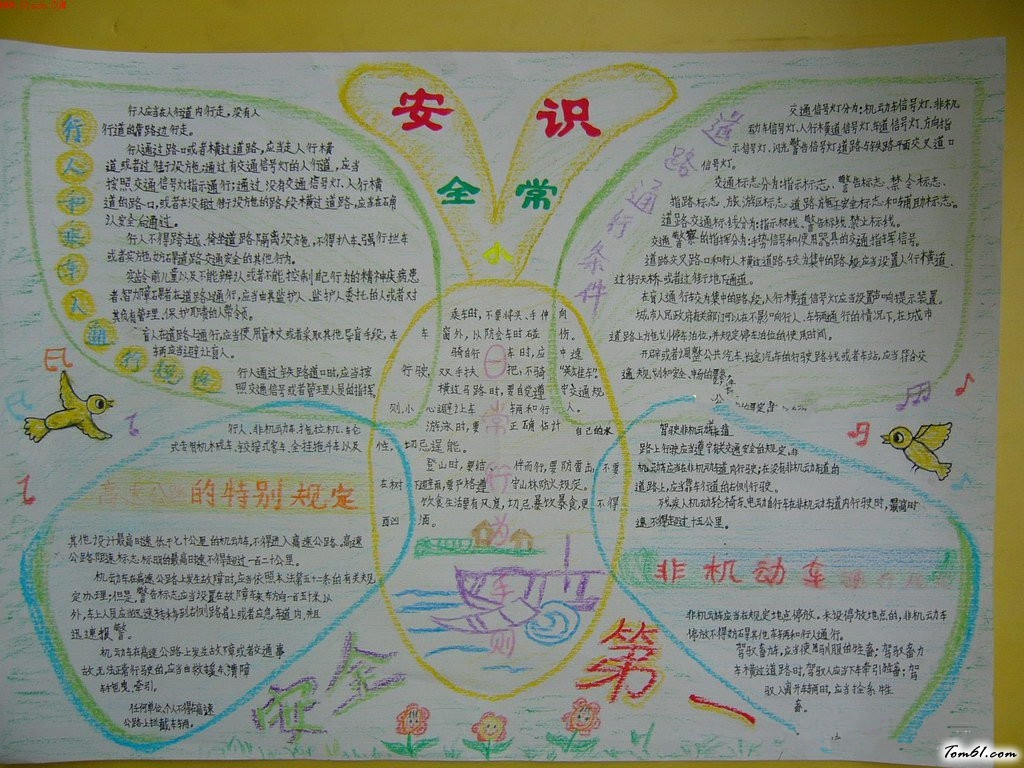 安 全 小 常 识
行人和乘车人通行规定
行人应当在人行道内行走,没有人
行道的靠路边行走。
行人通过路口或者横过道路,应当走人行横
道或者过街设施;通过有交通信号灯的人行道,应当
按照交通信号灯指示通行;通过没有交通信号灯、人行横
道的路口,或者在没有过街设施的路段横过道路,应当在确
认安全后通过。
行人不得跨越、倚坐道路隔离设施,不得扒车、强行拦车
或者实施妨碍道路交通安全的其他行为。
学龄前儿童以及不能辨认或者不能控制自己行为的精神疾病患
者、智力障碍者在道路上通行,应当由其监护人、监护人委托的人或者对
其负有管理、保护职责的人带领。
盲人在道路上通行,应当使用盲杖或者采取其他导盲手段,车
辆应当避让盲人。
行人通过铁路道口时,应当按
照交通信号或者管理人员的指挥
道路通行条件
交通信号灯分为:机动车信号灯、非机
动车信号灯、人行横道信号灯、车道信号灯、方向指
示信号灯、闪光警告信号灯、道路与铁路平面交叉道口
信号灯。
交通标志分为:指示标志、警告标志、禁令标志、
指路标志、旅游区标志、道路施工安全标志和辅助标志。
道路交通标线分为:指示标线、警告标线、禁止标线。
交通警察的指挥分为:手势信号和使用器具的交通指挥信号。
道路交叉路口和行人横过道路较为集中的路段应当设置人行横道、
过街天桥或者过街地下通道。
在盲人通行较为集中的路段,人行横道信号灯应当设置声响提示装置。
城市人民政府有关部门可以在不影响行人、车辆通行的情况下,在城市
道路上方划停车泊位,并规定停车泊位的使用时间。
开辟或者调整公共汽车、长途汽车的行驶路线或者车站,应当符合交
通规划和安全、畅通的要求
日常行为手则
乘车时,不要将头、手伸向
车窗外,以防会车时碰伤。
骑自行车时,应中速
行驶,双手扶把,不骑"英雄车"
横过马路时,要自觉遵守交通规
则,小心避让车辆和行人。
游泳时,要正确估计自己的水
性,切忌逞能。
登山时,要结伴而行,要防雷击,不要
在树下避雨,要严格遵守山林防火规定。
饮食生活要有风度,切忌暴饮暴食,更不得
酗酒。
行人、非机动车、拖拉机、轮
式专用机械车、铰接式客车、全挂拖斗车以及
高速公路的特别规定
其他设计最高时速低于七十公里的机动车,不得进入高速公路。高速
公路限速标志标明的最高时速不得超过一百二十公里。
机动车在高速公路上发生故障时,应当依照本法第五十二条的有关规
定办理;但是,警告标志应当设置在故障车来车方向一百五十米以
外,车上人员应当迅速转移到右侧路肩上或者应急车道内,并且
迅速报警。
机动车在高速公路上发生故障或者交通事
故,无法正常行驶的,应当由救援车、清障
车拖曳、牵引。
任何单位、个人不得在高速
公路上拦截车辆。
驾驶非机动车在道
路上行驶应当遵守有关交通安全的规定。非
机动车应当在非机动车道内行驶;在没有非机动车道的
道路上,应当靠车行道的右侧行驶。
残疾人机动轮椅车、电动自行车在非机动车道内行驶时,最高时
速不得超过十五公里。
非机动车
非机动车应当在规定地点停放。未设停放地点的,非机动车
停放不得妨碍其他车辆和行人通行。
驾驭畜力车,应当使用驯服的牲畜;驾驭畜力
车横过道路时,驾驭人应当下车牵引牲畜;驾
驭人离开车辆时,应当拴系牲
畜。
安全第一
Tom61.com